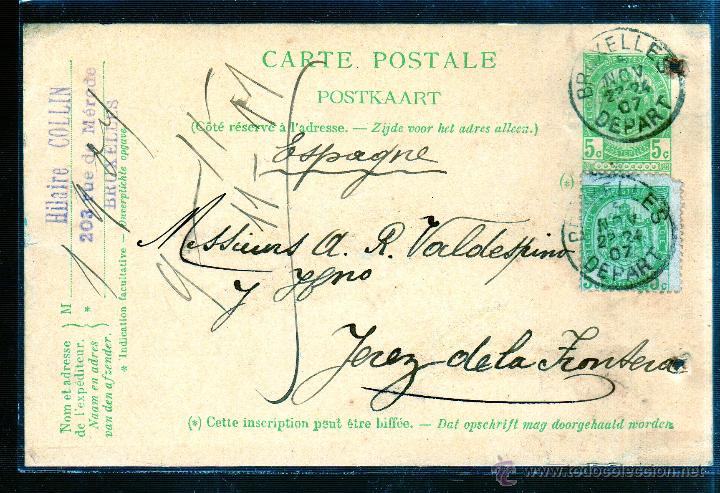 CARTE POSTALE
POSTKAART
(Côté réservé à l'adresse. — Zijde voor het adres alleen.)
Espagne
Messieurs A. R. Valdespino
y Hno
Jerez de la Frontera
(*) Cette inscription peut être biffée. — Dat opschrift mag doorgehaald worden.
(*)
5c 5c
BRUXELLES
NOV
22-24
07
DEPART
BRUXELLES
NOV
22-24
07
DEPART
Hilaire COLLIN
203, rue de Mérode
BRUXELLES
M
*
* Indication facultative. — Onverplichte opgave.
Nom et adresse
de l'expéditeur.
Naam en adres
van den afzender.
www.todocoleccion.net